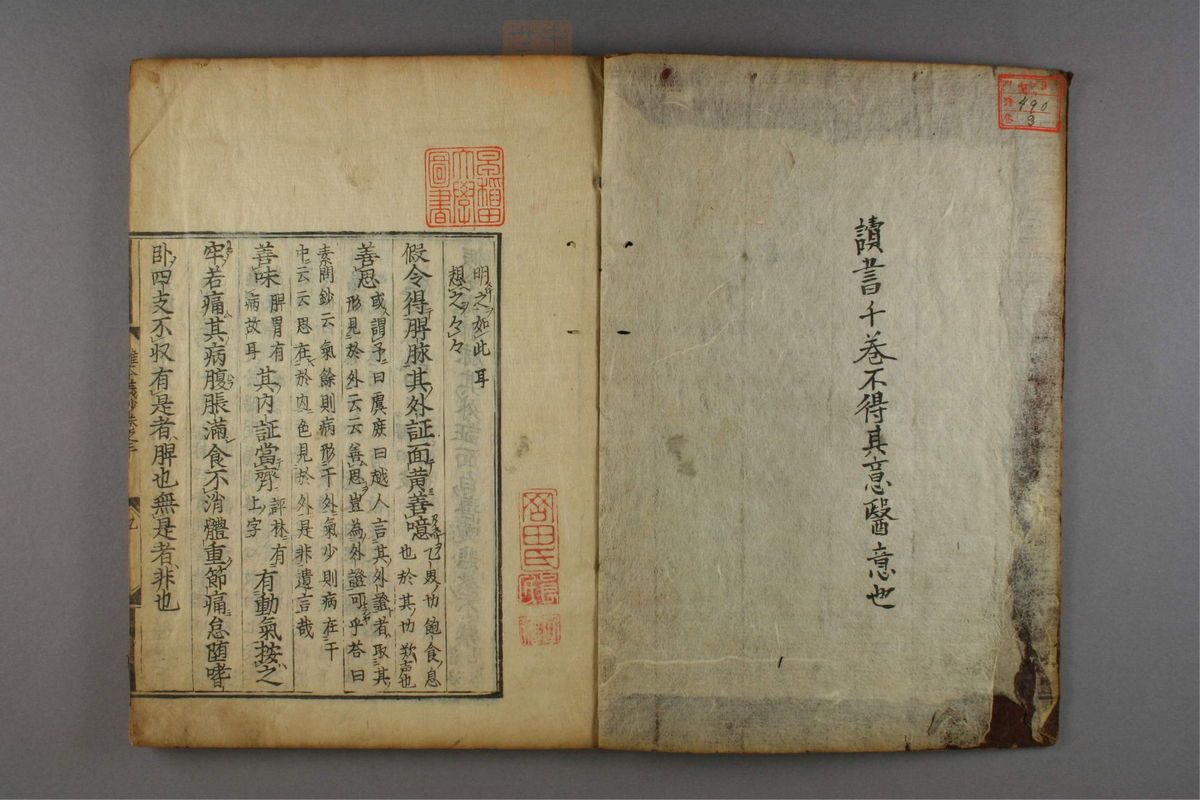 讀書千卷不得其意醫意也
490
3
早稲田大學圖書
明之如此耳
想之々々
假令得脾脉其外証面黄善噫
乙界切飽食息
也於其切欬声也
善思
或謂予曰虞庻曰越人言其外證者取其
形見於外云云善思豈為外證可乎答曰
素問鈔云氣餘則病形干外氣少則病在干
中云云思在於内色見於外是非遺言哉
善味
脾胃有
病故耳
其内証當齊
評林有
上字
有動氣按之
牢若痛其病腹脹滿食不消體重節痛怠堕嗜
卧四支不収有是者脾也無是者非也